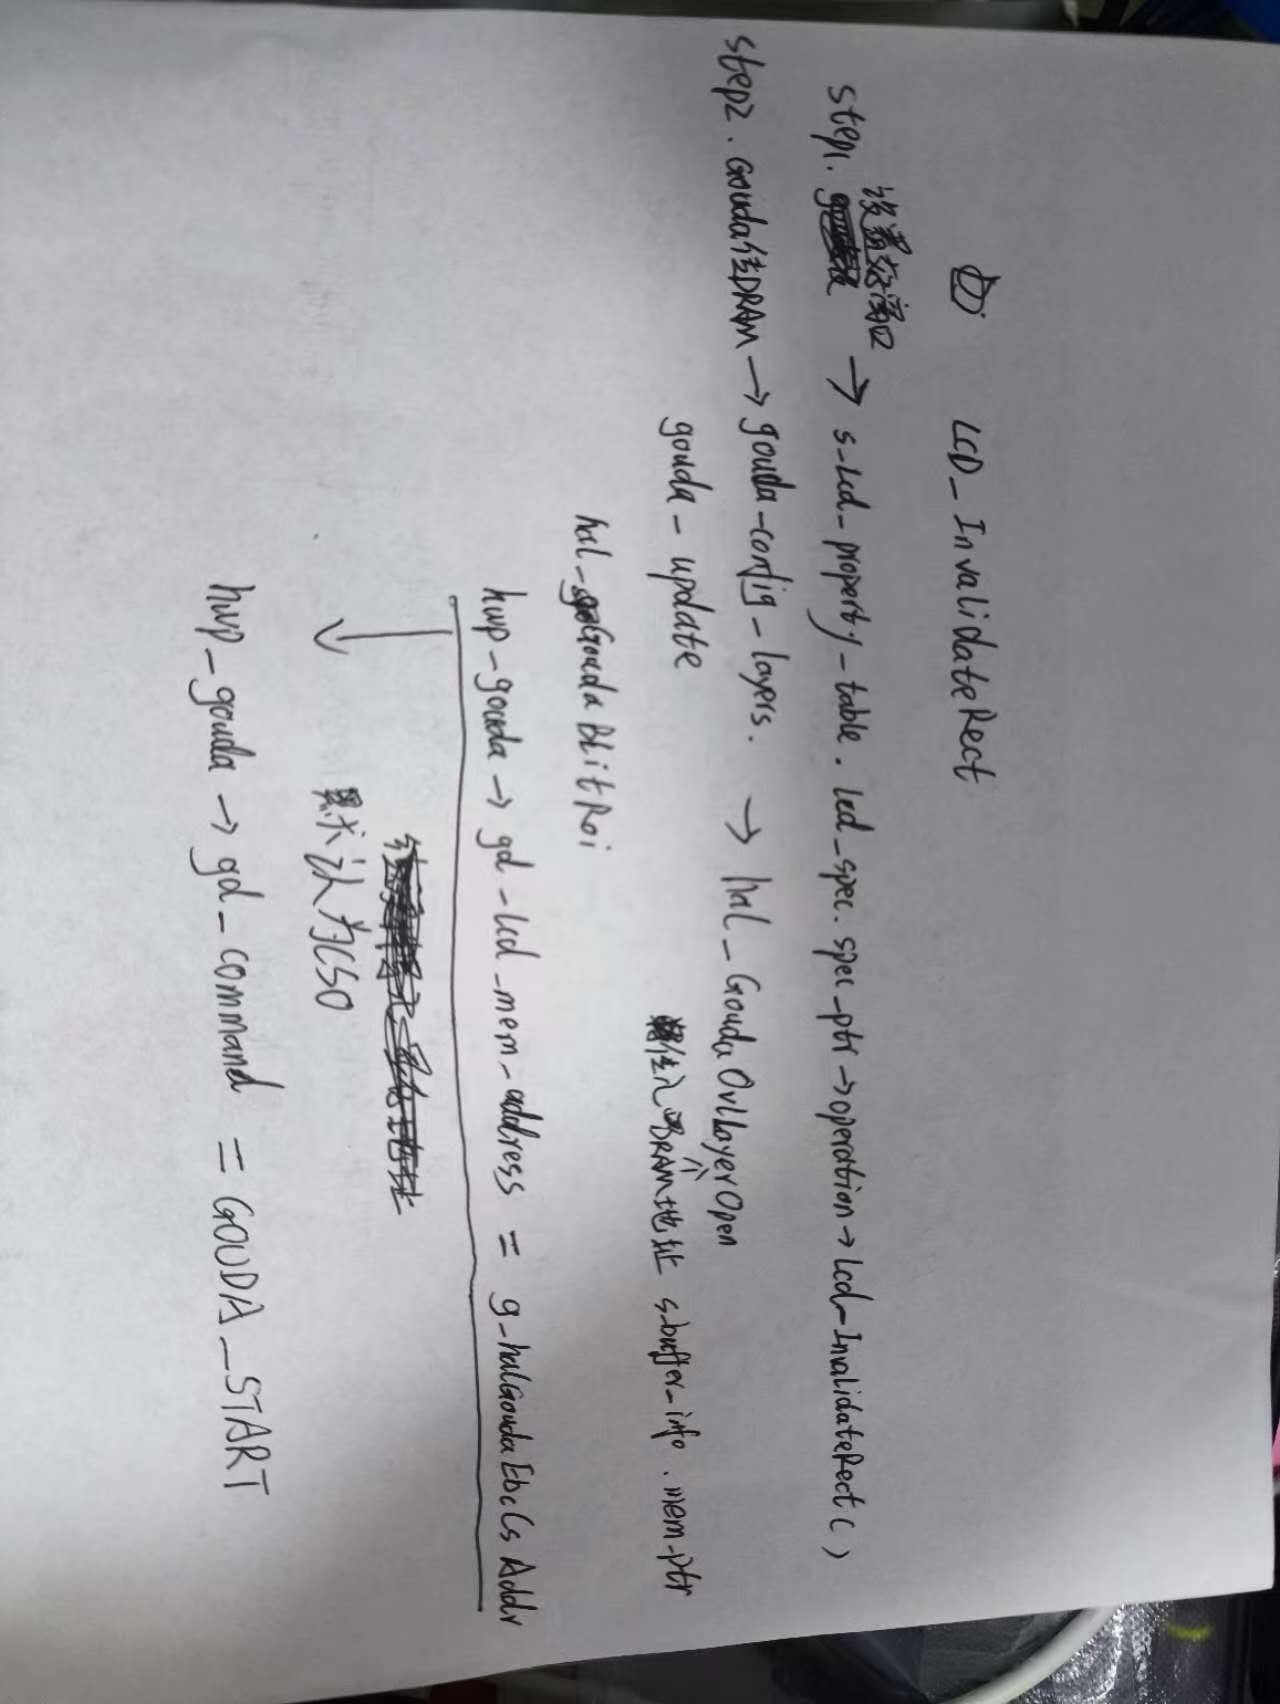 ④ LCD_InvalidateRect
设置好窗口
step1. → s_lcd_property_table.lcd_spec.spec_ptr→operation→Lcd_InvalidateRect()
step2. Gouda传DRAM → gouda_config_layers. → hal_GoudaOvlLayerOpen
gouda_update
传入DRAM地址 s_buffer_info.mem_ptr
hal_GoudaBlitRoi
hwp_gouda → gd_lcd_mem_address = g_halGoudaEbcCsAddr
↓ 默认为CS0
hwp_gouda → gd_command = GOUDA_START